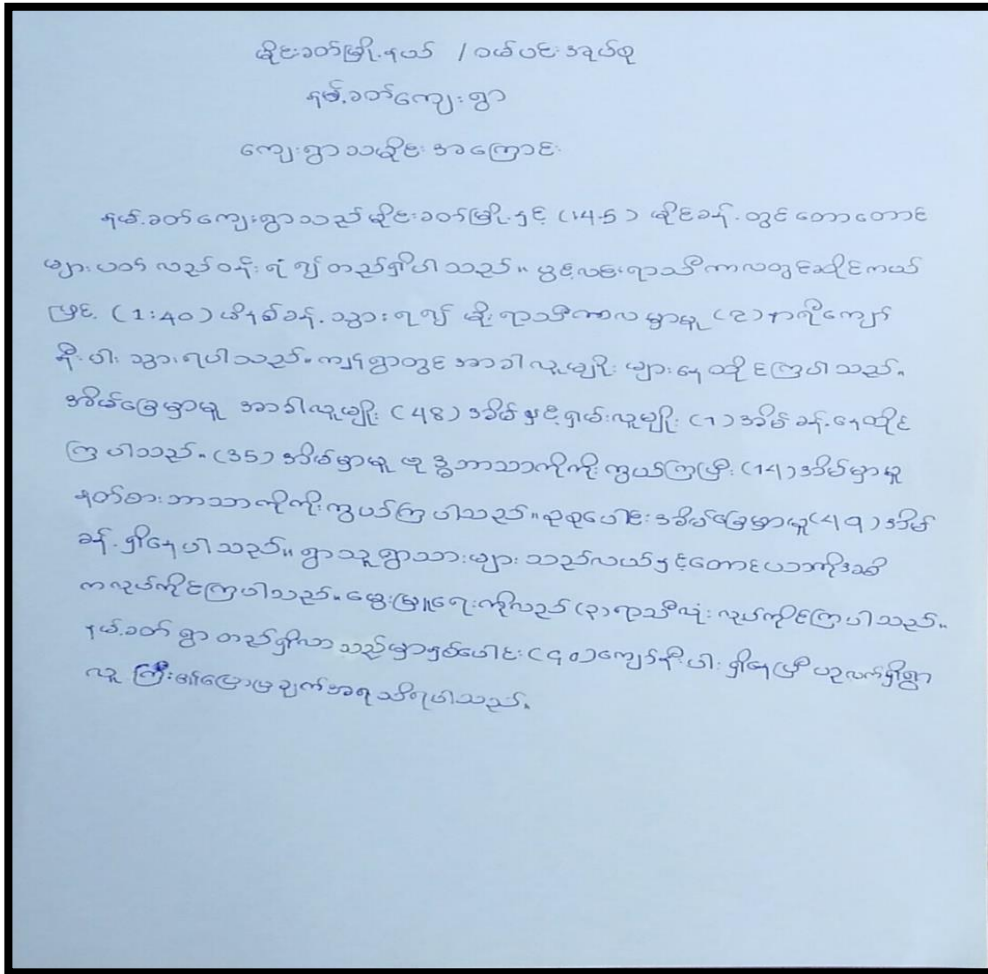 မိုင်းခတ်မြို့နယ် / ဝမ်ပင်းအုပ်စု
နမ့်ခတ်ကျေးရွာ
ကျေးရွာသမိုင်းအကြောင်း
နမ့်ခတ်ကျေးရွာသည် မိုင်းခတ်မြို့နှင့် (14.5) မိုင်ခန့်တွင် တောတောင်
များပတ်လည်ဝန်းရံ၍ တည်ရှိပါသည်။ ပွင့်လင်းရာသီကာလတွင်ဆိုင်ကယ်
ဖြင့် (1:40) မိနစ်ခန့်သွားရ၍ မိုးရာသီကာလမှာမူ (၃) နာရီကျော်
နီးပါး သွားရပါသည်။ ကျေးရွာတွင် အာခါလူမျိုးများနေထိုင်ကြပါသည်။
အိမ်ခြေမှာမူ အာခါလူမျိုး (48) အိမ်နှင့်ရှမ်းလူမျိုး (1) အိမ်ခန့်နေထိုင်
ကြပါသည်။ (35) အိမ်မှာမူ ဗုဒ္ဓဘာသာကိုကိုးကွယ်ကြပြီး (14) အိမ်မှာမူ
နတ်စားဘာသာကိုကိုးကွယ်ကြပါသည်။ စုစုပေါင်းအိမ်ခြေမှာမူ (49) အိမ်
ခန့်ရှိနေပါသည်။ ရွာသူရွာသားများသည်လယ်နှင့်တောင်ယာကိုအဓိ
ကလုပ်ကိုင်ကြပါသည်။ မွေးမြူရေးကိုလည်း (၃) ရာသီလုံး လုပ်ကိုင်ကြပါသည်။
နမ့်ခတ် ရွာ တည်ရှိလာသည်မှာနှစ်ပေါင်း (၄၀) ကျော်နီးပါး ရှိနေပြီ ယခုလက်ရှိရွာ
လူကြီး၏ပြောပြချက်အရ သိရပါသည်။